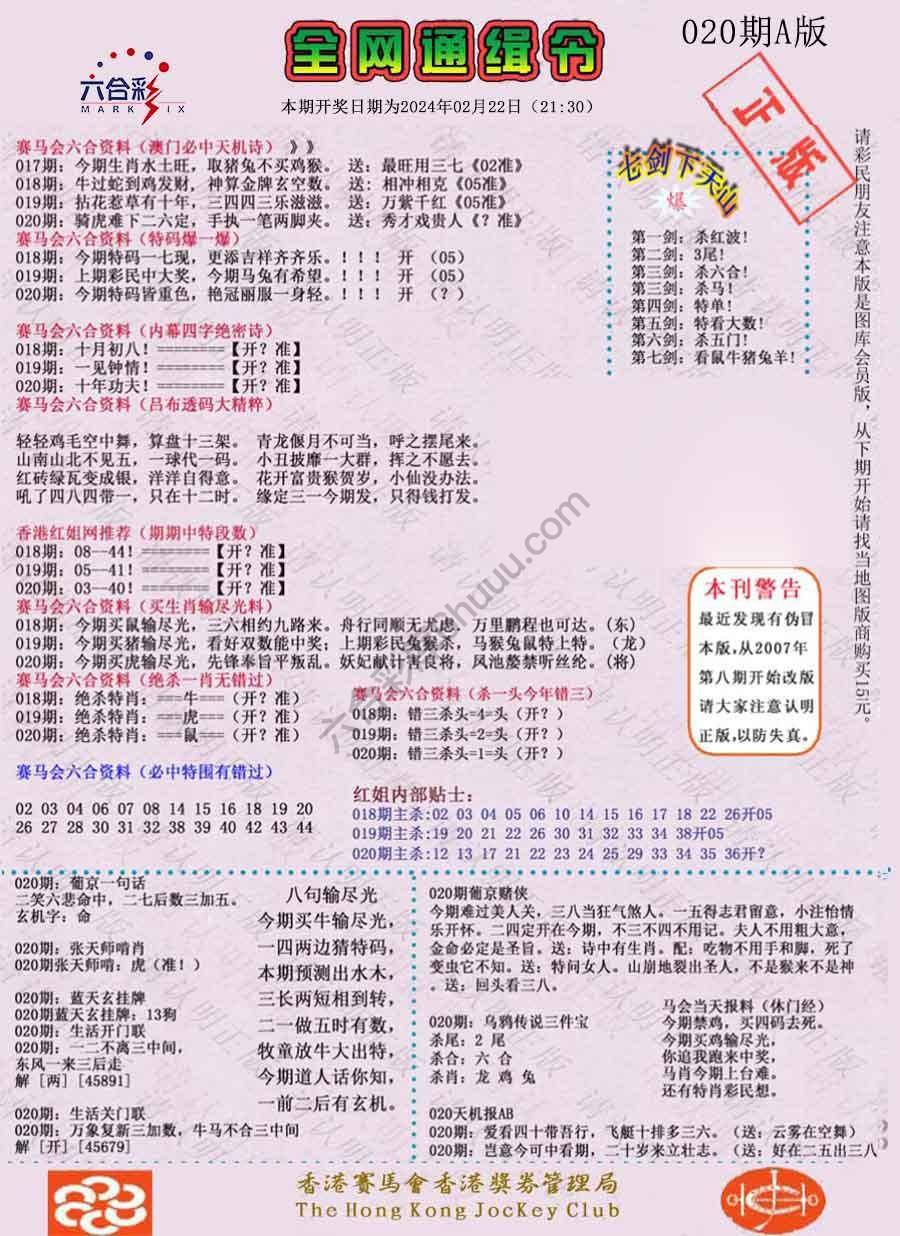 020期A版
全网通缉令
六合彩
MARK SIX
本期开奖日期为2024年02月22日（21:30）
正版
赛马会六合资料（澳门必中天机诗）》》
017期：今期生肖水土旺，取猪兔不买鸡猴。 送：最旺用三七《02准》
018期：牛过蛇到鸡发财，神算金牌玄空数。 送：相冲相克《05准》
019期：拈花惹草有十年，三四四三乐滋滋。 送：万紫千红《05准》
020期：骑虎难下二六定，手执一笔两脚夹。 送：秀才戏贵人《？准》
赛马会六合资料（特码爆一爆）
018期：今期特码一七现，更添吉祥齐齐乐。！！！ 开 （05）
019期：上期彩民中大奖，今期马兔有希望。！！！ 开 （05）
020期：今期特码皆重色，艳冠丽服一身轻。！！！ 开 （？）
赛马会六合资料（内幕四字绝密诗）
018期：十月初八！========【开？准】
019期：一见钟情！========【开？准】
020期：十年功夫！========【开？准】
赛马会六合资料（吕布透码大精粹）
轻轻鸡毛空中舞，算盘十三架。 青龙偃月不可当，呼之摆尾来。
山南山北不见五，一球代一码。 小丑披靡一大群，挥之不愿去。
红砖绿瓦变成银，洋洋自得意。 花开富贵猴贺岁，小仙没办法。
吼了四八四带一，只在十二时。 缘定三一今期发，只得钱打发。
七剑下天山
爆
第一剑：杀红波！
第二剑：3尾！
第三剑：杀六合！
第三剑：杀马！
第四剑：特单！
第五剑：特看大数！
第六剑：杀五门！
第七剑：看鼠牛猪兔羊！
请彩民朋友注意本版是图库会员版，从下期开始请找当地图版商购买15元。
香港红姐网推荐（期期中特段数）
018期：08--44！========【开？准】
019期：05--41！========【开？准】
020期：03--40！========【开？准】
赛马会六合资料（买生肖输尽光料）
018期：今期买鼠输尽光，三六相约九路来。舟行同顺无尤虑，万里鹏程也可达。（东）
019期：今期买猪输尽光，看好双数能中奖；上期彩民兔猴杀，马猴兔鼠特上特。（龙）
020期：今期买虎输尽光，先锋奉旨平叛乱。妖妃献计害良将，风池嫠禁听丝纶。（将）
赛马会六合资料（绝杀一肖无错过）
018期：绝杀特肖：===牛===（开？准）
019期：绝杀特肖：===虎===（开？准）
020期：绝杀特肖：===鼠===（开？准）
赛马会六合资料（杀一头今年错三）
018期：错三杀头=4=头（开？）
019期：错三杀头=2=头（开？）
020期：错三杀头=1=头（开？）
本刊警告
最近发现有伪冒
本版，从2007年
第八期开始改版
请大家注意认明
正版，以防失真。
赛马会六合资料（必中特围有错过）
02 03 04 06 07 08 14 15 16 18 19 20
26 27 28 30 31 32 38 39 40 42 43 44
红姐内部贴士：
018期主杀:02 03 04 05 06 10 14 15 16 17 18 22 26开05
019期主杀:19 20 21 22 26 30 31 32 33 34 38开05
020期主杀:12 13 17 21 22 23 24 25 29 33 34 35 36开？
020期：葡京一句话
二笑六悲命中，二七后数三加五。
玄机字：命
020期：张天师啃肖
020期张天师啃：虎（准！）
020期：蓝天玄挂牌
020期蓝天玄挂牌：13狗
020期：生活开门联
020期：一二不离三中间，
东风一来三后走
解 [两] [45891]
020期：生活关门联
020期：万象复新三加数，牛马不合三中间
解 [开] [45679]
八句输尽光
今期买牛输尽光，
一四两边猜特码，
本期预测出水木，
三长两短相到转，
二一做五时有数，
牧童放牛大出特，
今期道人话你知，
一前二后有玄机。
020期葡京赌侠
今期难过美人关，三八当狂气煞人。一五得志君留意，小注怡情
乐开怀。二四定开在今期，不三不四不用记。夫人不用粗大意，
金命必定是圣旨。送：诗中有生肖。配：吃物不用手和脚，死了
变虫它不知。送：特问女人。山崩地裂出圣人，不是猴来不是神
。送：回头看三八。
020期：乌鸦传说三件宝
杀尾：2 尾
杀合：六 合
杀肖：龙 鸡 兔
马会当天报料（休门经）
今期禁鸡，买四码去死。
今期买鸡输尽光，
你追我跑来中奖，
马肖今期上台难。
还有特肖彩民想。
020天机报AB
020期：爱看四十带吾行，飞艇十排多三六。（送：云雾在空舞）
020期：岂意今可中看期，二十岁来立壮志。（送：好在二五出三八
香港賽馬會香港獎券管理局
The Hong Kong JocKey Club